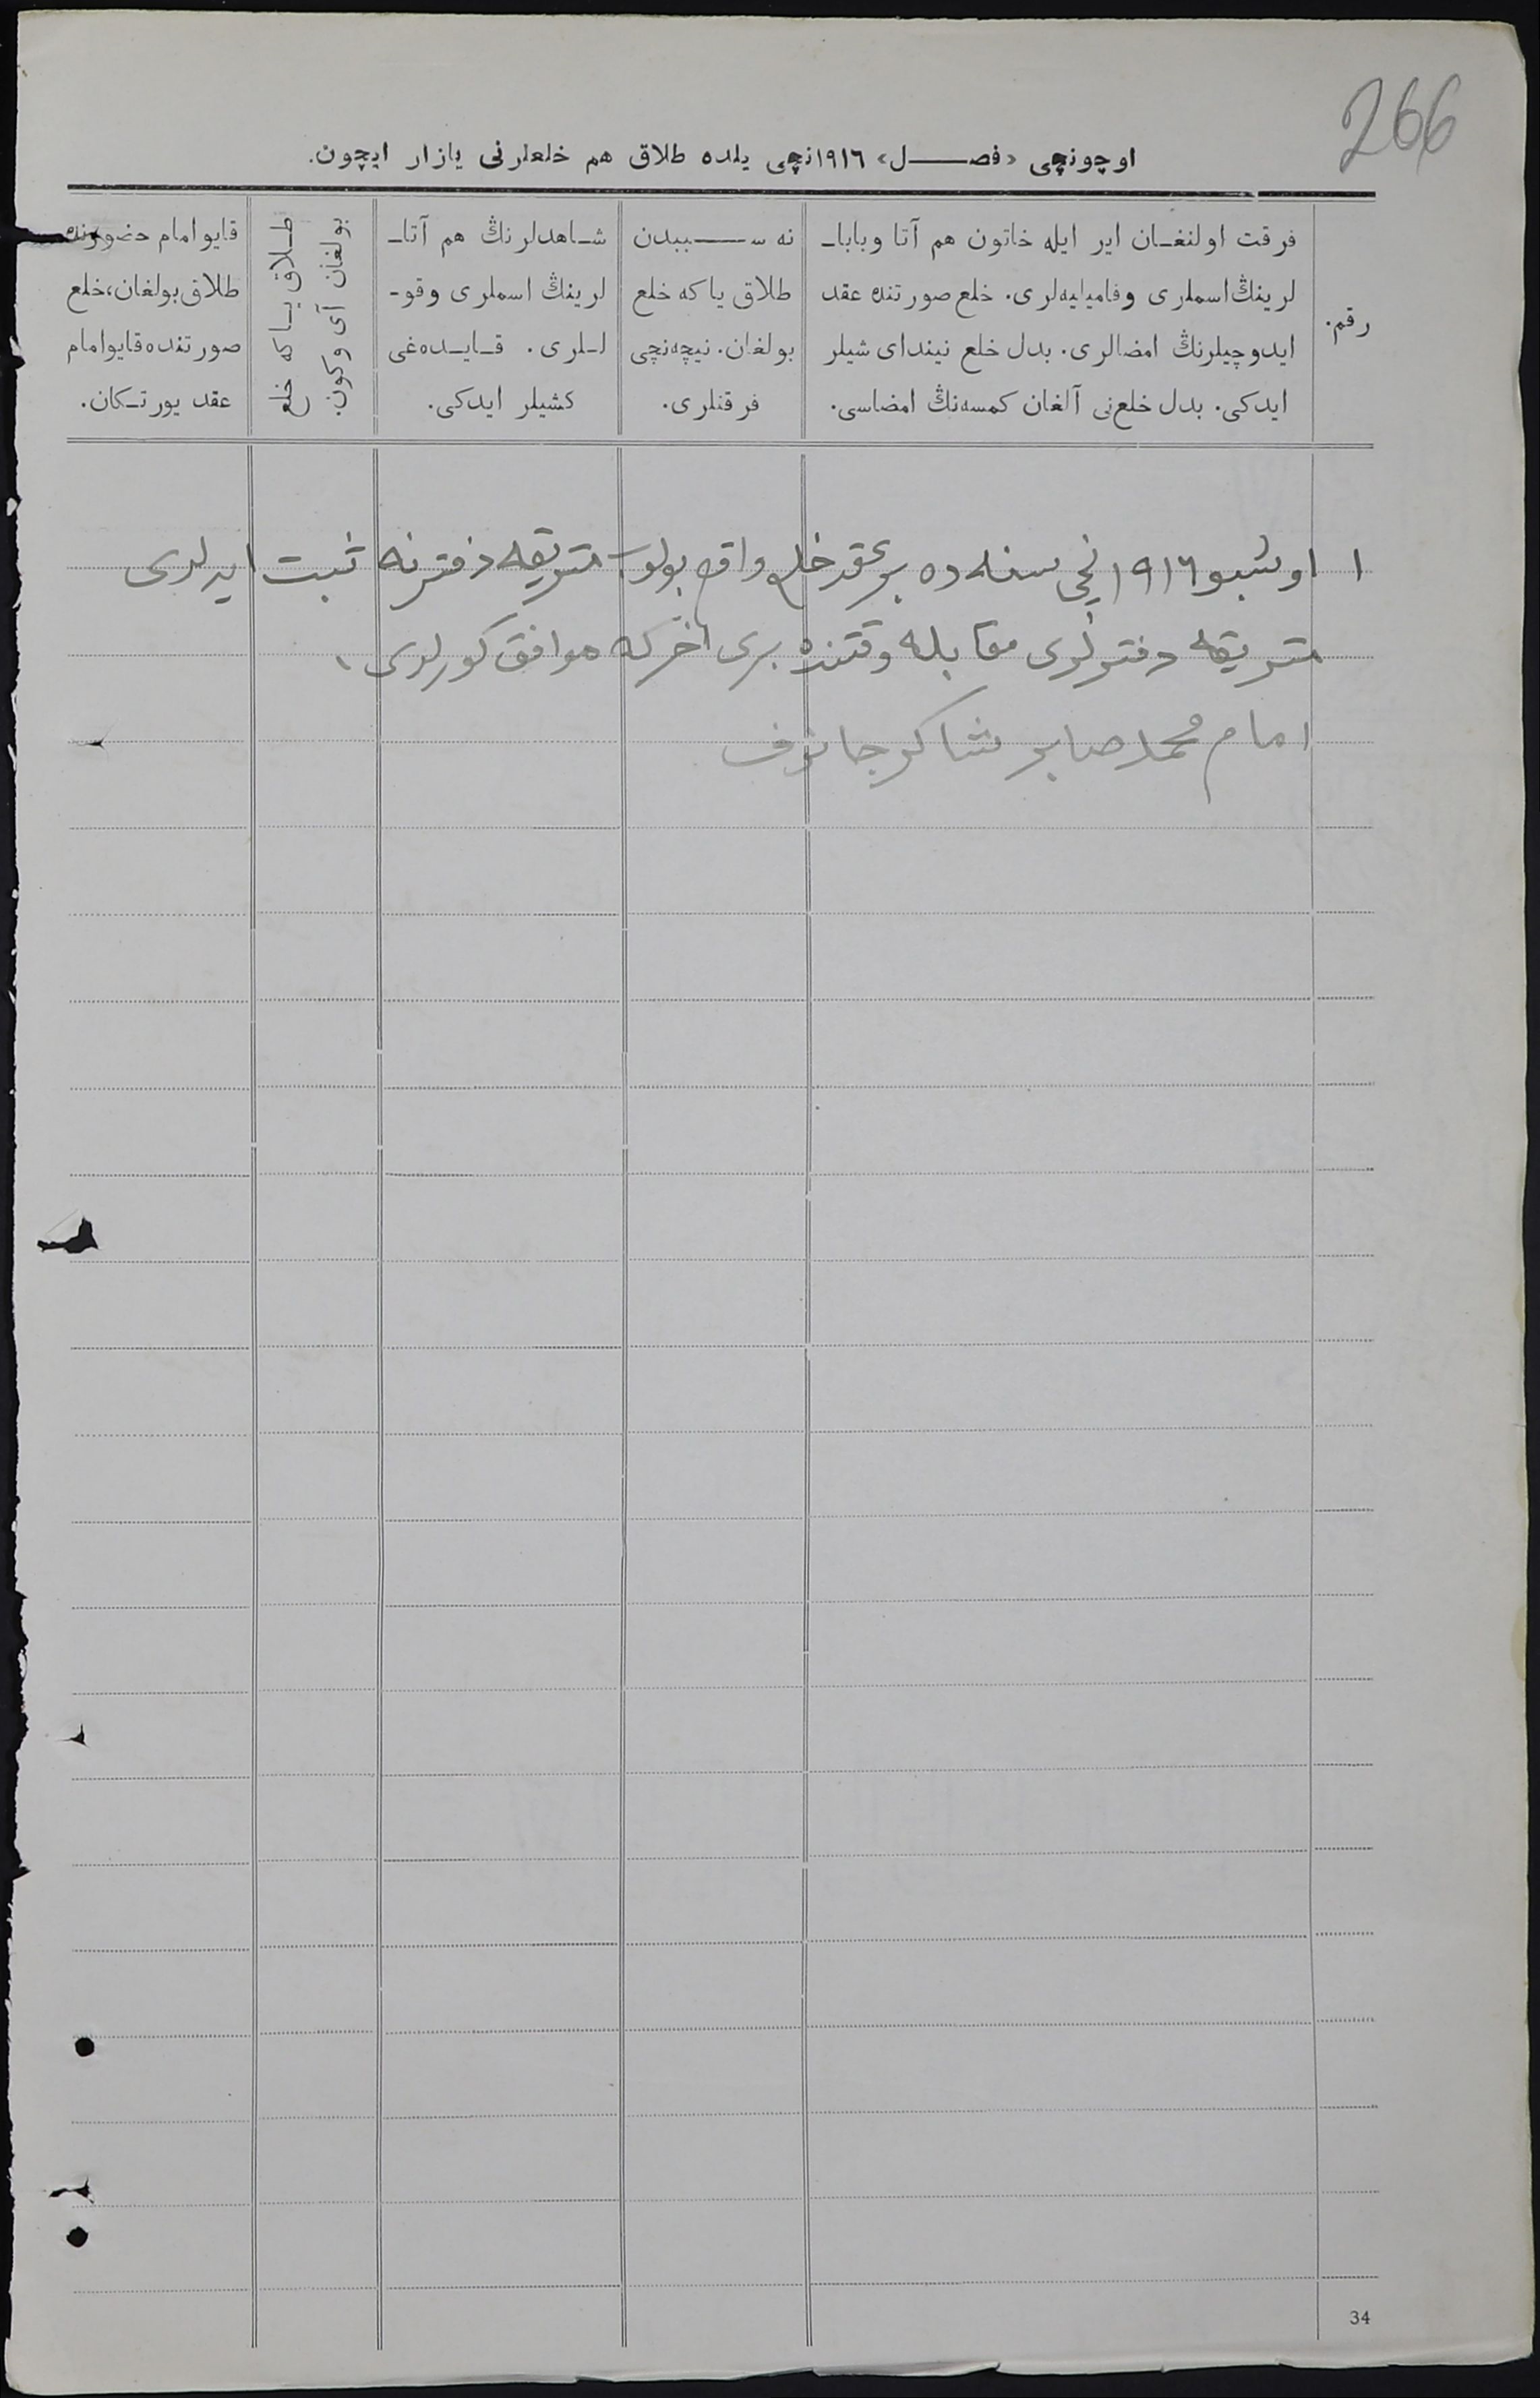 266
اوچونچی «فصل» ١٩١٦نچی یلده طلاق هم خلعلرنی یازار ایچون.
رقم.
فرقت اولنغان ایر ایله خاتون هم آتا وبابا-
لرینڭ اسملری وفامیلیه‌لری. خلع صورتنده عقد
ایدوچیلرنڭ امضالری. بدل خلع نیندای شیلر
ایدکی. بدل خلع‌نی آلغان کمسه‌نڭ امضاسی.
نه سببدن
طلاق یا که خلع
بولغان. نیچه‌نچی
فرقتلری.
شاهدلرنڭ هم آتا-
لرینڭ اسملری وقو-
للری. قایده‌غی
کشیلر ایدکی.
طلاق یا که خلع
بولغان آی وکون.
قایو امام حضورنده
طلاق بولغان، خلع
صورتنده قایو امام
عقد یورتکان.
١ اوشبو ١٩١٦ نچی سنه ده بر عقد خلع واقع بولوب متریقه دفترینه ثبت ایدلدی
متریقه دفترلری مقابله وقتنده بری اخرکه موافق کورلدی.
امام محمد صابر شاکرجانوف
34